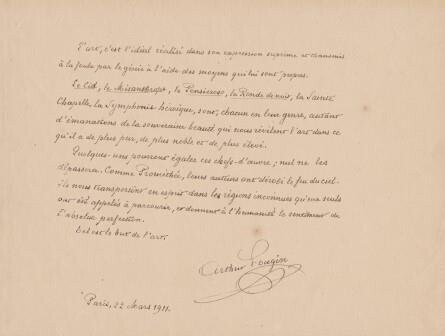 L'art, c'est l'idéal réalisé dans son expression suprême et transmis
à la foule par le génie à l'aide des moyens qui lui sont propres.
Le Cid, le Misanthrope, le Pensieroso, la Ronde de nuit, la Sainte
Chapelle, la Symphonie héroïque, sont, chacun en leur genre, autant
d'émanations de la souveraine beauté, qui nous révèlent l'art dans ce
qu'il a de plus pur, de plus noble et de plus élevé.
Quelques-uns pourront égaler ces chefs-d'œuvre; nul ne les
dépassera. Comme Prométhée, leurs auteurs ont dérobé le feu du ciel.
Ils nous transportent en esprit dans les régions inconnues qu'eux seuls
ont été appelés à parcourir, et donnent à l'humanité le sentiment de
l'absolue perfection.
Tel est le but de l'art.
Arthur Pougin
Paris, 22 Mars 1911.